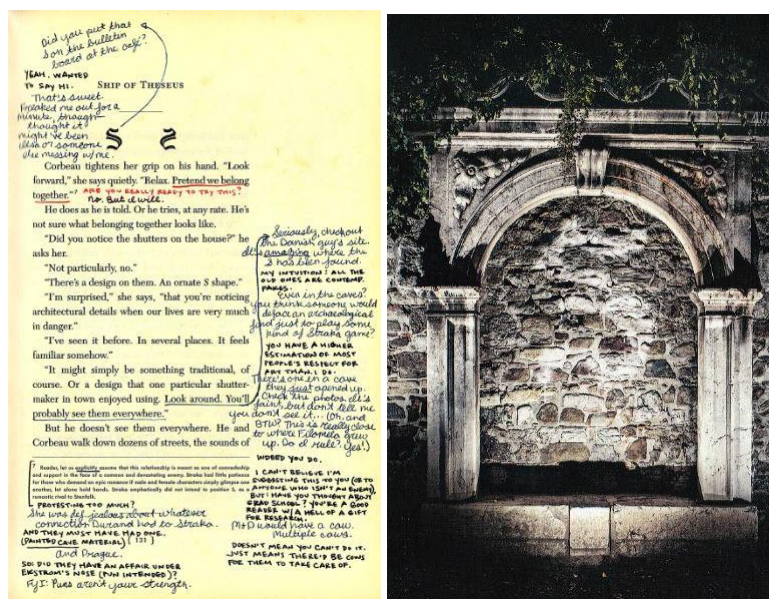 Did you put that
S on the bulletin
board at the café?
YEAH. WANTED
TO SAY HI.
That's sweet.
Freaked me out for a
minute, though—
thought it
might've been
Ilsa or someone
else messing w/me.
SHIP OF THESEUS
S S
Corbeau tightens her grip on his hand. "Look
forward," she says quietly. "Relax. Pretend we belong
together."⁷ ARE YOU REALLY READY TO TRY THIS?
No. But I will.
He does as he is told. Or he tries, at any rate. He's
not sure what belonging together looks like.
"Did you notice the shutters on the house?" he
asks her.
"Not particularly, no."
"There's a design on them. An ornate S shape."
"I'm surprised," she says, "that you're noticing
architectural details when our lives are very much
in danger."
"I've seen it before. In several places. It feels
familiar somehow."
"It might simply be something traditional, of
course. Or a design that one particular shutter-
maker in town enjoyed using. Look around. You'll
probably see them everywhere."
But he doesn't see them everywhere. He and
Corbeau walk down dozens of streets, the sounds of
Seriously, check out
the Danish guy's site.
It's amazing where the
S has been found.
MY INTUITION: ALL THE
OLD ONES ARE CONTEMP.
FAKES.
Even in the caves?
You think someone would
deface an archaeological
find just to play some
kind of Straka game?
YOU HAVE A HIGHER
ESTIMATION OF MOST
PEOPLE'S RESPECT FOR
ART THAN I DO.
There's one in a cave
they just opened up.
Check the photos. It's
faint, but don't tell me
you don't see it... (Oh, and
BTW? This is really close
to where Filomela grew
up. Do I rule? Yes!)
INDEED YOU DO.
I CAN'T BELIEVE I'M
SUGGESTING THIS TO YOU (OR TO
ANYONE WHO ISN'T AN ENEMY),
BUT: HAVE YOU THOUGHT ABOUT
GRAD SCHOOL? YOU'RE A GOOD
READER W/ A HELL OF A GIFT
FOR RESEARCH.
M+D would have a cow.
Multiple cows.
DOESN'T MEAN YOU CAN'T DO IT.
JUST MEANS THERE'D BE COWS
FOR THEM TO TAKE CARE OF.
⁷ Reader, let us explicitly assume that this relationship is meant as one of comradeship
and support in the face of a common and devastating enemy. Straka had little patience
for those who demand an epic romance if male and female characters simply glimpse one
another, let alone hold hands. Straka emphatically did not intend to position S. as a
romantic rival to Stenfalk.
PROTESTING TOO MUCH?
She was def. jealous about whatever
connection Durand had to Straka.
AND THEY MUST HAVE HAD ONE.
(PAINTED CAVE MATERIAL) [ 131 ]
and Prague.
SO: DID THEY HAVE AN AFFAIR UNDER
EKSTROM'S NOSE (PUN INTENDED)?
FYI: Puns aren't your strength.